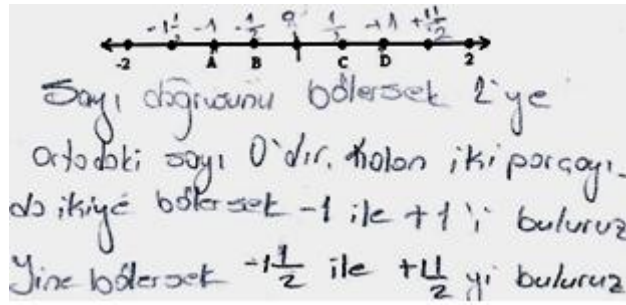 -1 1/2 -1 -1/2 0 1/2 +1 +1 1/2
-2 A B C D 2
Sayı doğrusunu bölersek 2'ye
Ortadaki sayı 0'dır. Kalan iki parçayı
da ikiye bölersek -1 ile +1'i buluruz
Yine bölersek -1 1/2 ile +1 1/2 yi buluruz